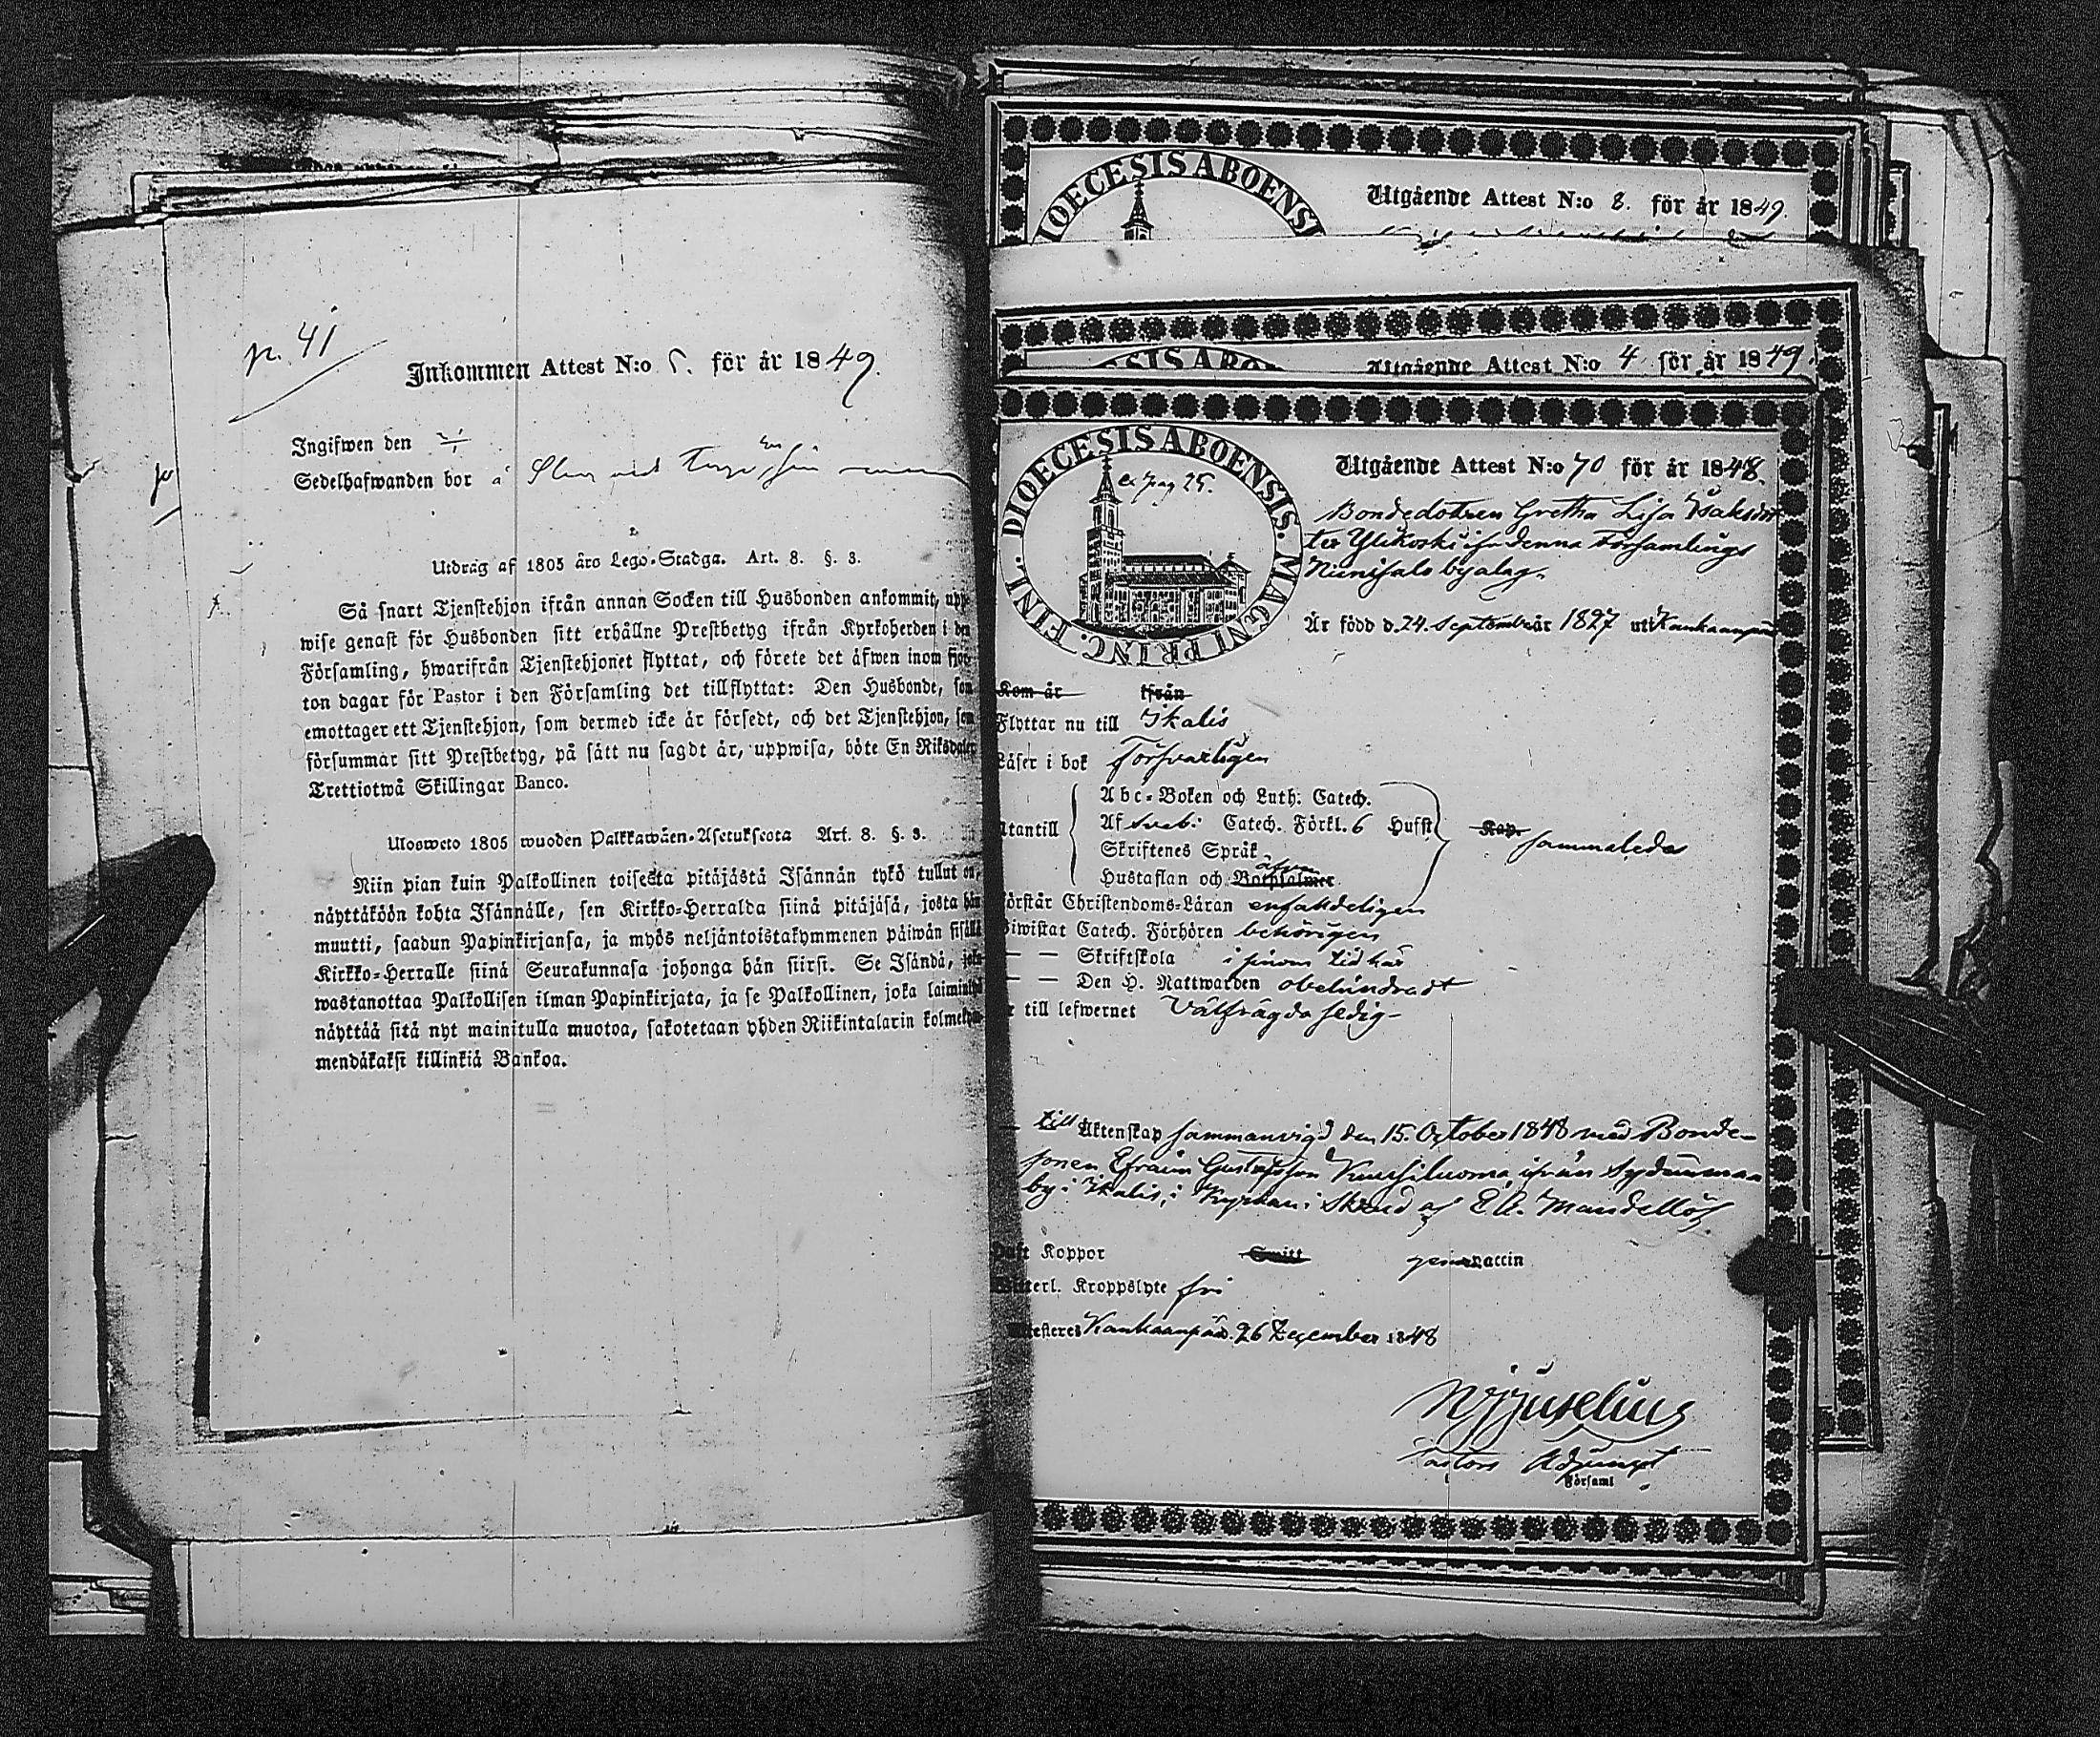 p. 41
Inkommen Attest N:o 5. för år 1849.
Ingifwen den
Sedelhafwanden bor å
Utdrag af 1805 års Lego-Stadga. Art. 8. §. 3.
Så snart Tjenstehjon ifrån annan Socken till Husbonden ankommit, upp-
wise genast för Husbonden sitt erhållne Prestbetyg ifrån Kyrkoherden i den
Församling, hwarifrån Tjenstehjonet flyttat, och förete det äfwen inom fjor-
ton dagar för Pastor i den Församling det tillflyttat: Den Husbonde, som
emottager ett Tjenstehjon, som dermed icke är försedt, och det Tjenstehjon, som
försummar sitt Prestbetyg, på sätt nu sagdt är, uppwisa, böte En Riksdaler
Trettiotwå Skillingar Banco.
Ulosweto 1805 wuoden Palkkawäen-Asetuksesta Art. 8. §. 3.
Niin pian kuin Palkollinen toisesta pitäjästä Isännän tykö tullut on,
näyttäköön kohta Isännälle, sen Kirkko-Herralda siinä pitäjäsä, josta hän
muutti, saadun Papinkirjansa, ja myös neljäntoistakymmenen päiwän sisällä
Kirkko-Herralle siinä Seurakunnasa johonga hän siirsi. Se Isändä, joka
wastanottaa Palkollisen ilman Papinkirjata, ja se Palkollinen, joka laiminlyö
näyttää sitä nyt mainitulla muotoa, sakotetaan yhden Riikintalarin kolmekym-
mendäkaksi killinkiä Bankoa.
DIOECESIS ABOENSI
Utgående Attest N:o 8. för år 1849.
ESIS ABO
Utgående Attest N:o 4 för år 1849.
DIOECESIS ABOENSIS. MAGNI PRINC. FINL.
ex pag 25.
Utgående Attest N:o 70 för år 1848.
Bondedottren Gretha Lisa Isaksdot
ter Ylikoski ifr denna Församlings
Niinisalo byalag.
Är född d. 24. September år 1827 uti Kankaanpää
Kom år ifrån
Flyttar nu till Ikalis
Läser i bok Försvarligen
Utantill
Abc-Boken och Luth: Catech.
Af Sveb: Catech. Förkl. 6 Hufst
Skriftenes Språk
Hustaflan och Botpsalmer
äfven
Kap. sammaledes
Förstår Christendoms-Läran enfaldeligen
Biwistat Catech. Förhören behörigen
— — Skriftskola i sinom tid här
— — Den H. Nattwarden obehindradt
Är till lefwernet Välfrägda ledig
till Äktenskap sammanvigd den 15. October 1848 med Bonde-
sonen Efraim Gustafsson Kuusiluoma ifrån Sydänmaa
by i Ikalis, i Kyrkan i Skrud af E A. Mandellöf
Haft Koppor Smitt genom Vaccin
Witterl. Kroppslyte fri
Attesteres Kankaanpää. 26 December 1848
N J Juselius
Pastors Adjunct
Församl